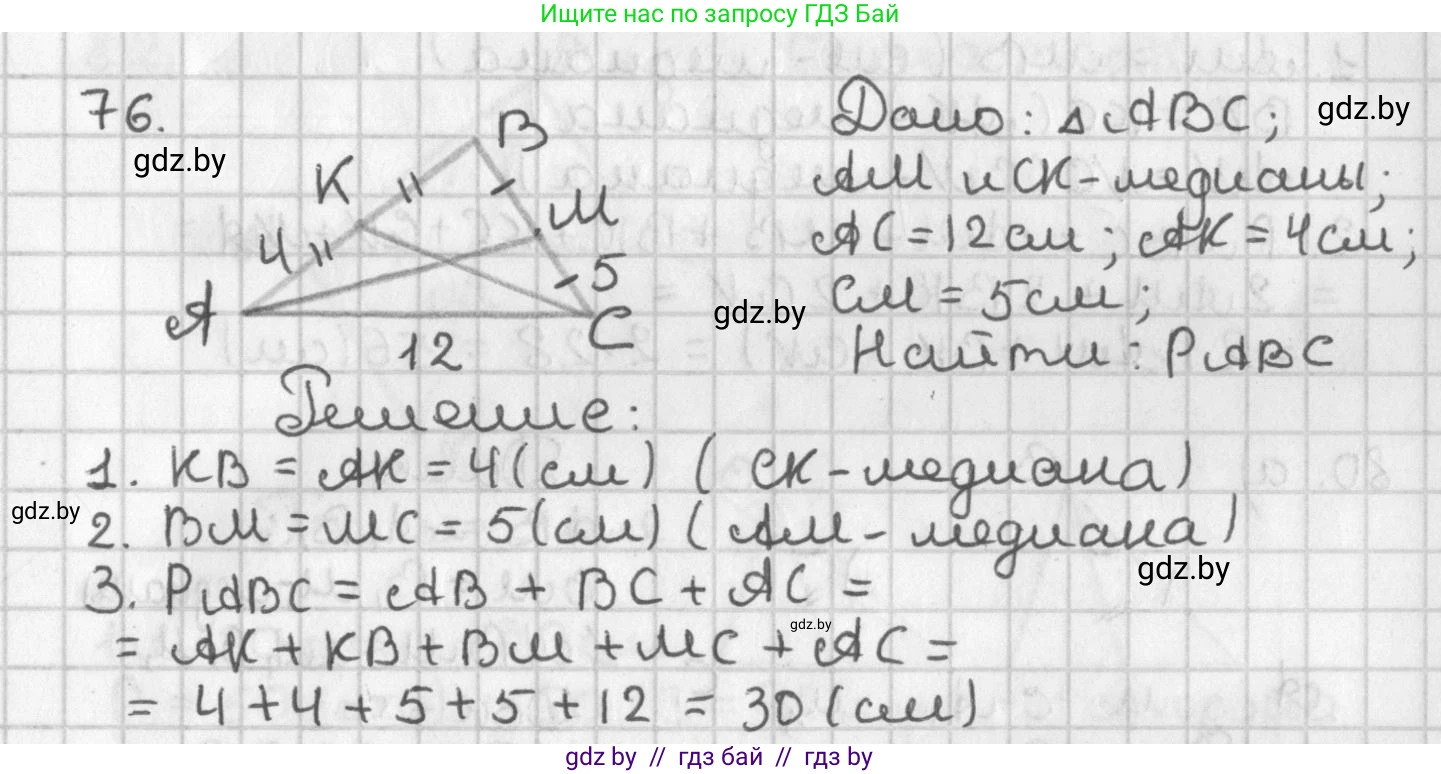 Ищите нас по запросу ГДЗ Бай
76.
gdz.by
B
K
M
4
5
A
C
12
Дано: △ABC;
gdz.by
AM и CK - медианы;
AC = 12 см; AK = 4 см;
CM = 5 см;
gdz.by
Найти: PABC
Решение:
1. KB = AK = 4 (см) (CK - медиана)
gdz.by
2. BM = MC = 5 (см) (AM - медиана)
gdz.by
3. PABC = AB + BC + AC =
gdz.by
= AK + KB + BM + MC + AC =
= 4 + 4 + 5 + 5 + 12 = 30 (см)
gdz.by // гдз бай // гдз by